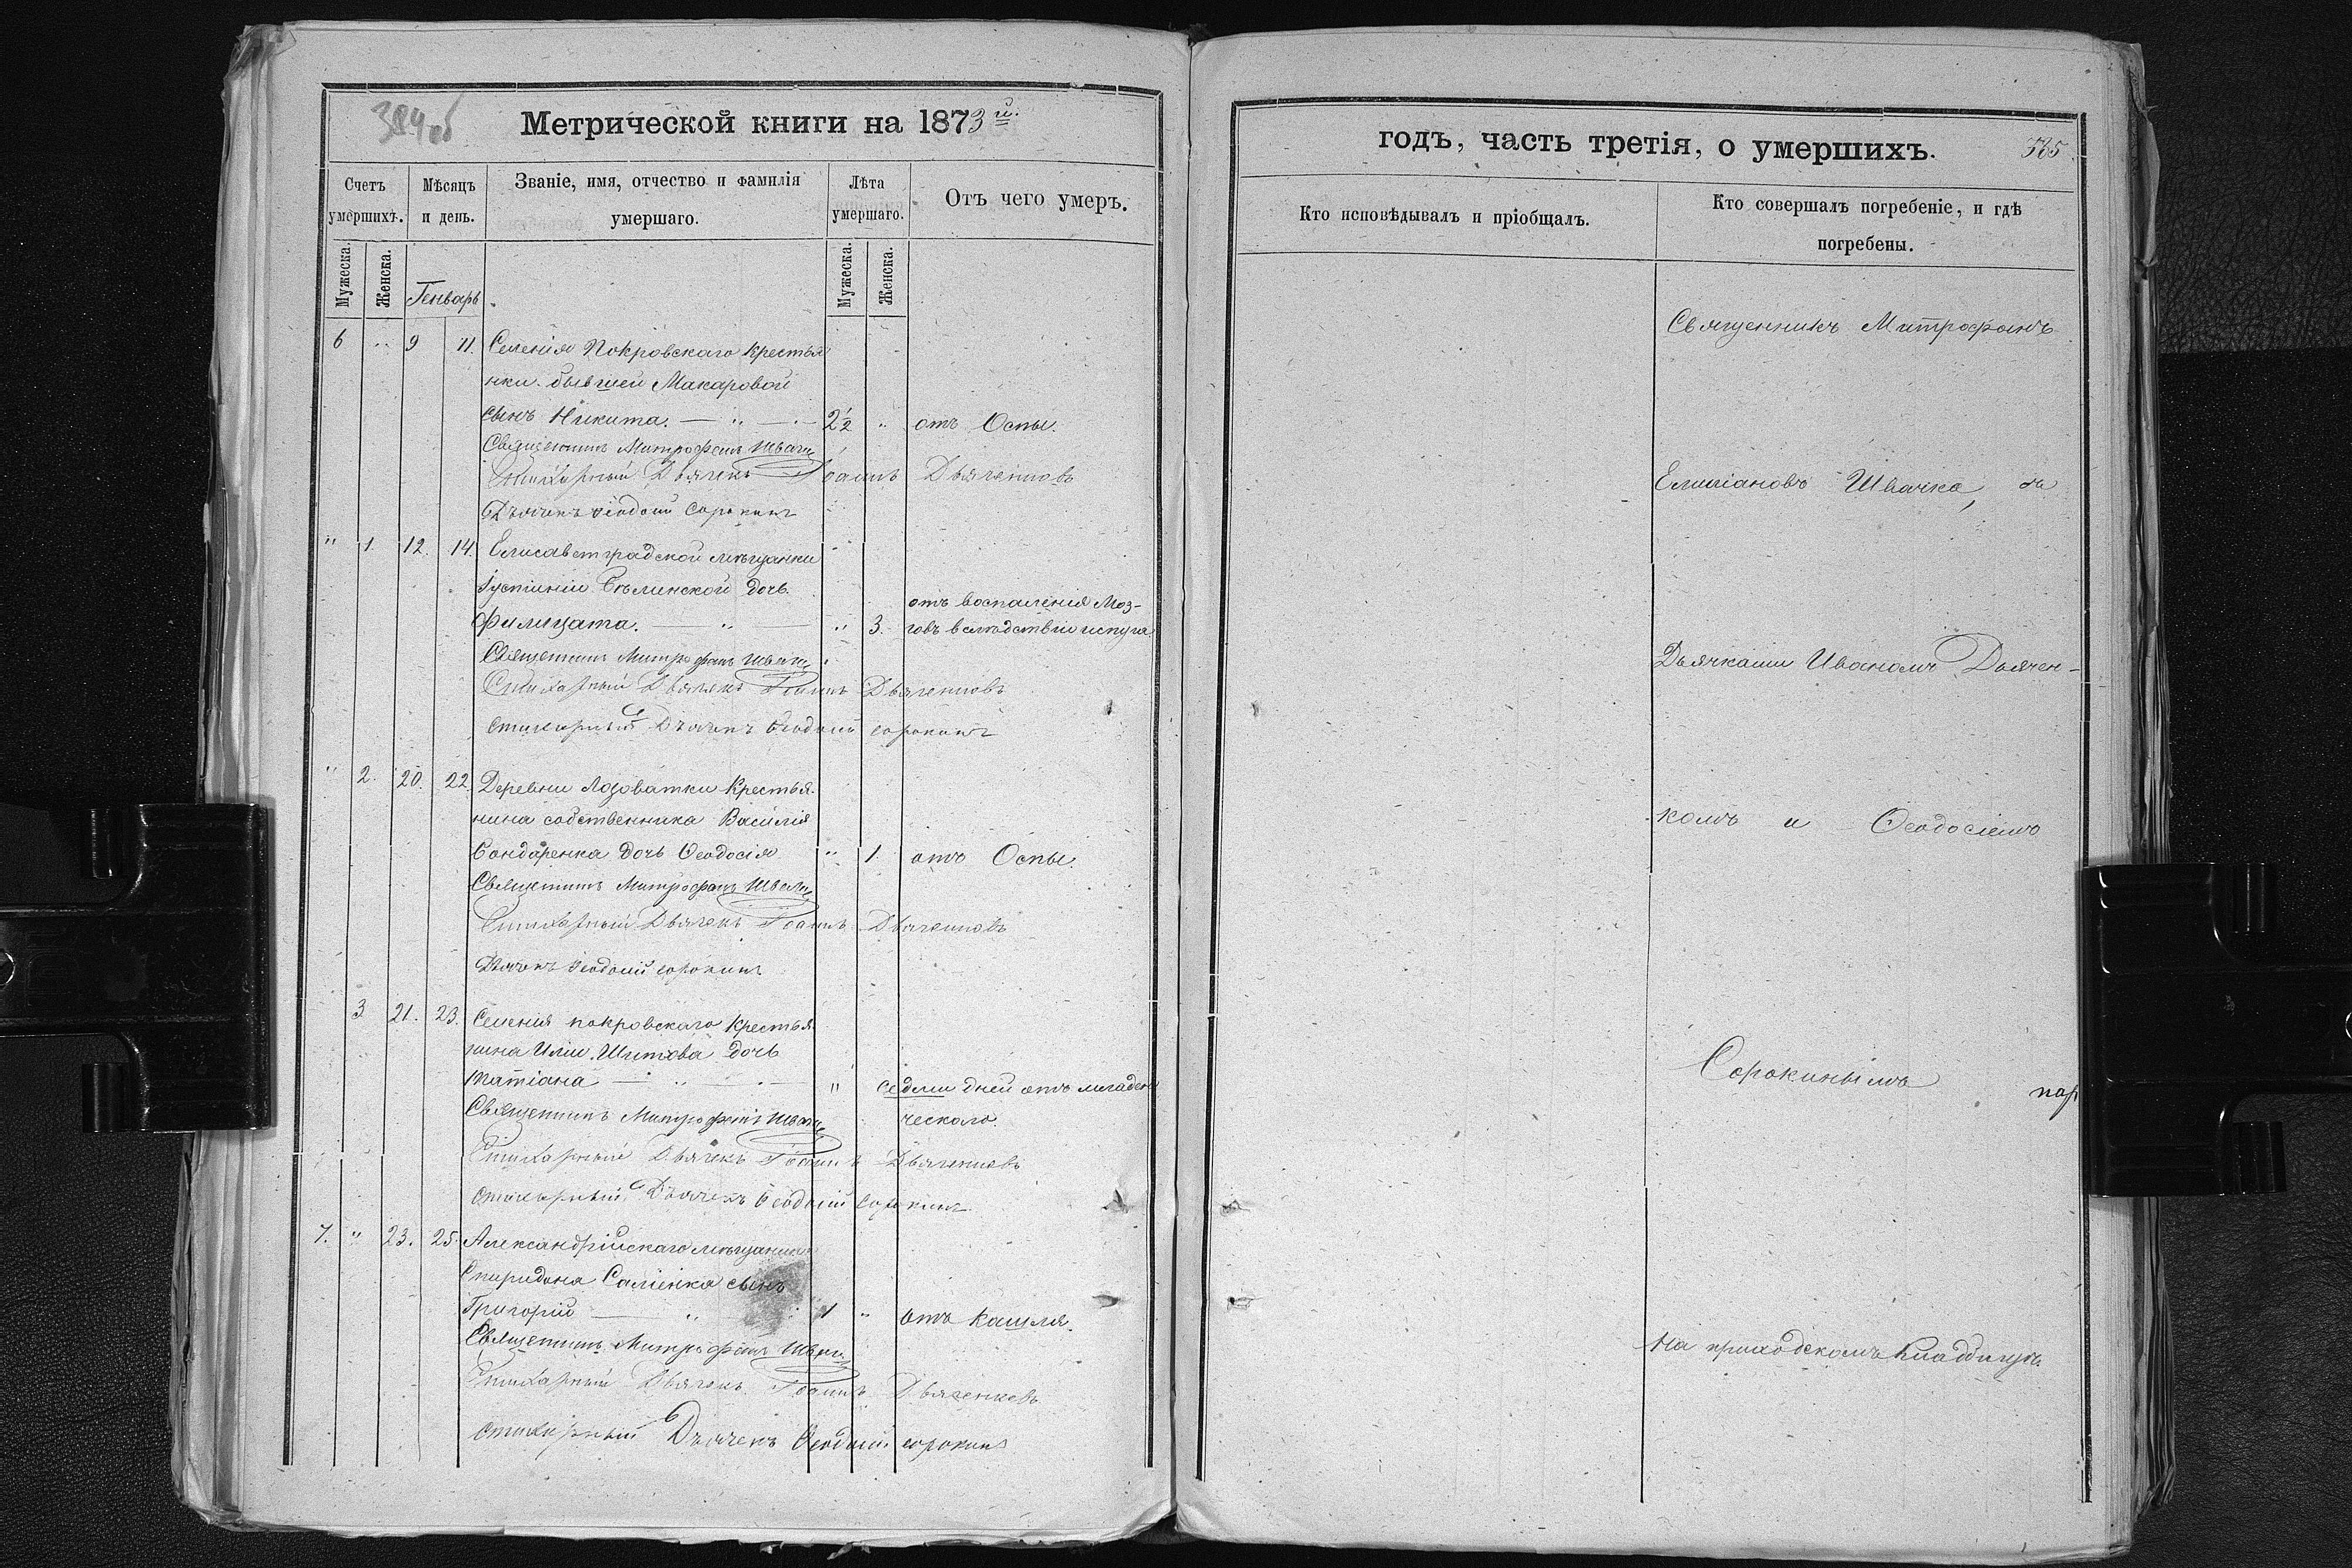 Метрической книги на 1873й.
Счетъ умершихъ.
Мѣсяцъ и день.
Званіе, имя, отчество и фамилія умершаго.
Лѣта умершаго.
Отъ чего умеръ.
Мужеска.
Женска.
Генварь
Мужеска.
Женска.
6 " 9 11. Селенія Покровскаго крестья
нки бывшей Макаровой
сынъ Никита. — " — 2 1/2 " отъ Оспы.
Священникъ Митрофанъ Швачка
Стихарный Дьячекъ Іоаннъ Дьяченковъ
Дьячекъ Ѳеодосій Сорокинъ
" 1. 12. 14. Елисаветградской мѣщанки
Іустиніи Бѣлинской дочь
Филицата. — " — " 3. отъ воспаленія моз-
говъ вслѣдствіи испуга
Священникъ Митрофанъ Швачка
Стихарный Дьячекъ Іоаннъ Дьяченковъ
Стихарный Дьячекъ Ѳеодосій Сорокинъ
" 2. 20. 22. Деревни Лозоватки Крестья-
нина собственника Василія
Бондаренка дочь Ѳеодосія " 1. отъ Оспы.
Священникъ Митрофанъ Швачка
Стихарный Дьячекъ Іоаннъ Дьяченковъ
Дьячекъ Ѳеодосій Сорокинъ
3 21. 23. Селенія покровскаго Крестья-
нина Иліи Шитова дочь
Татіана — " — " седми дней отъ младен
ческаго.
Священникъ Митрофанъ Швачка
Стихарный Дьячекъ Іоаннъ Дьяченковъ
Стихарный Дьячекъ Ѳеодосій Сорокинъ
7. " 23. 25. Александрійскаго мѣщанина
Спиридона Саліенка сынъ
Григорій — " 1 " отъ кашля.
Священникъ Митрофанъ Швачка
Стихарный Дьячекъ Іоаннъ Дьяченковъ
Стихарный Дьячекъ Ѳеодосій Сорокинъ
годъ, часть третія, о умершихъ.
Кто исповѣдывалъ и пріобщалъ.
Кто совершалъ погребеніе, и гдѣ погребены.
Священникъ Митрофанъ
Емиліановъ Швачка, съ
Дьячками Иваномъ Дьячен-
комъ и Ѳеодосіемъ
Сорокинымъ
На приходскомъ кладбищѣ.